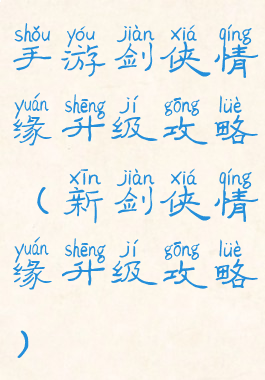 shǒu yóu jiàn xiá qíng
手游剑侠情
yuán shēng jí gōng lüè
缘升级攻略
xīn jiàn xiá qíng
(新剑侠情
yuán shēng jí gōng lüè
缘升级攻略
)